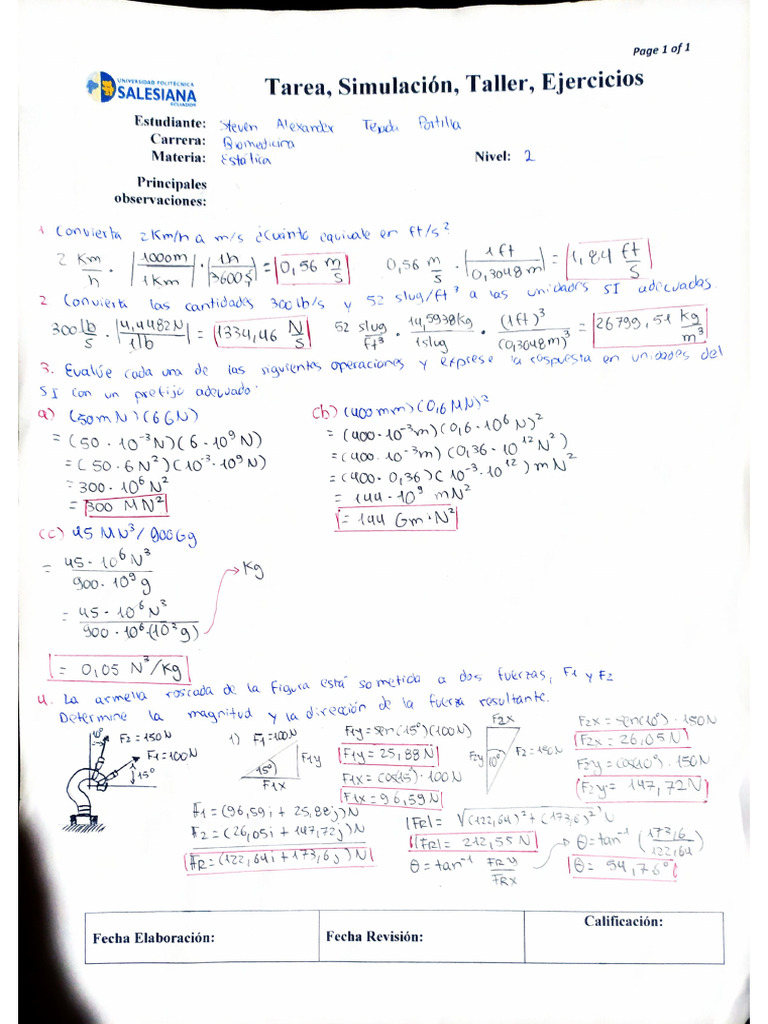 Page 1 of 1
UNIVERSIDAD POLITÉCNICA
SALESIANA
ECUADOR
Tarea, Simulación, Taller, Ejercicios
Estudiante: Steven Alexander Tejada Portilla
Carrera: Biomedicina
Materia: Estática
Nivel: 2
Principales
observaciones:
1 Convierta 2 Km/h a m/s ¿Cuánto equivale en ft/s?
2 Km/h · |1000m/1Km| · |1h/3600s| = 0,56 m/s
0,56 m/s · |1ft/0,3048m| = 1,84 ft/s
2 Convierta las cantidades 300lb/s y 52 slug/ft³ a las unidades SI adecuadas.
300lb/s · |4,4482N/1lb| = 1334,46 N/s
52 slug/ft³ · 14,5938Kg/1slug · (1ft)³/(0,3048m)³ = 26799,51 Kg/m³
3. Evalúe cada una de las siguientes operaciones y exprese la respuesta en unidades del
SI con un prefijo adecuado:
a) (50mN)(6GN)
= (50·10⁻³N)(6·10⁹N)
= (50·6N²)(10⁻³·10⁹N)
= 300·10⁶N²
= 300 MN²
(b) (400mm)(0,6MN)²
= (400·10⁻³m)(0,6·10⁶N)²
= (400·10⁻³m)(0,36·10¹²N²)
= (400·0,36)(10⁻³·10¹²)mN²
= 144·10⁹ mN²
= 144 Gm·N²
(c) 45 MN³/900Gg
= 45·10⁶N³/900·10⁹g
= 45·10⁶N³/900·10⁶(10³g) → Kg
= 0,05 N³/Kg
4. La armella roscada de la figura está sometida a dos fuerzas, F1 y F2
Determine la magnitud y la dirección de la fuerza resultante.
10°
F2=150N
F1=100N
15°
1) F1=100N
15°
F1y
F1x
F1y=sen(15°)(100N)
F1y=25,88N
F1x=cos(15°)·100N
F1x=96,59N
F2x
F2y
10°
F2=150N
F2x=sen(10°)·150N
F2x=26,05N
F2y=cos(10°)·150N
F2y=147,72N
F1=(96,59i+25,88j)N
F2=(26,05i+147,72j)N
FR=(122,64i+173,6j)N
|FR|=√(122,64)²+(173,6)²
|FR|=212,55N
θ=tan⁻¹ FRy/FRx
θ=tan⁻¹(173,6/122,64)
θ=54,76°
Fecha Elaboración:
Fecha Revisión:
Calificación: